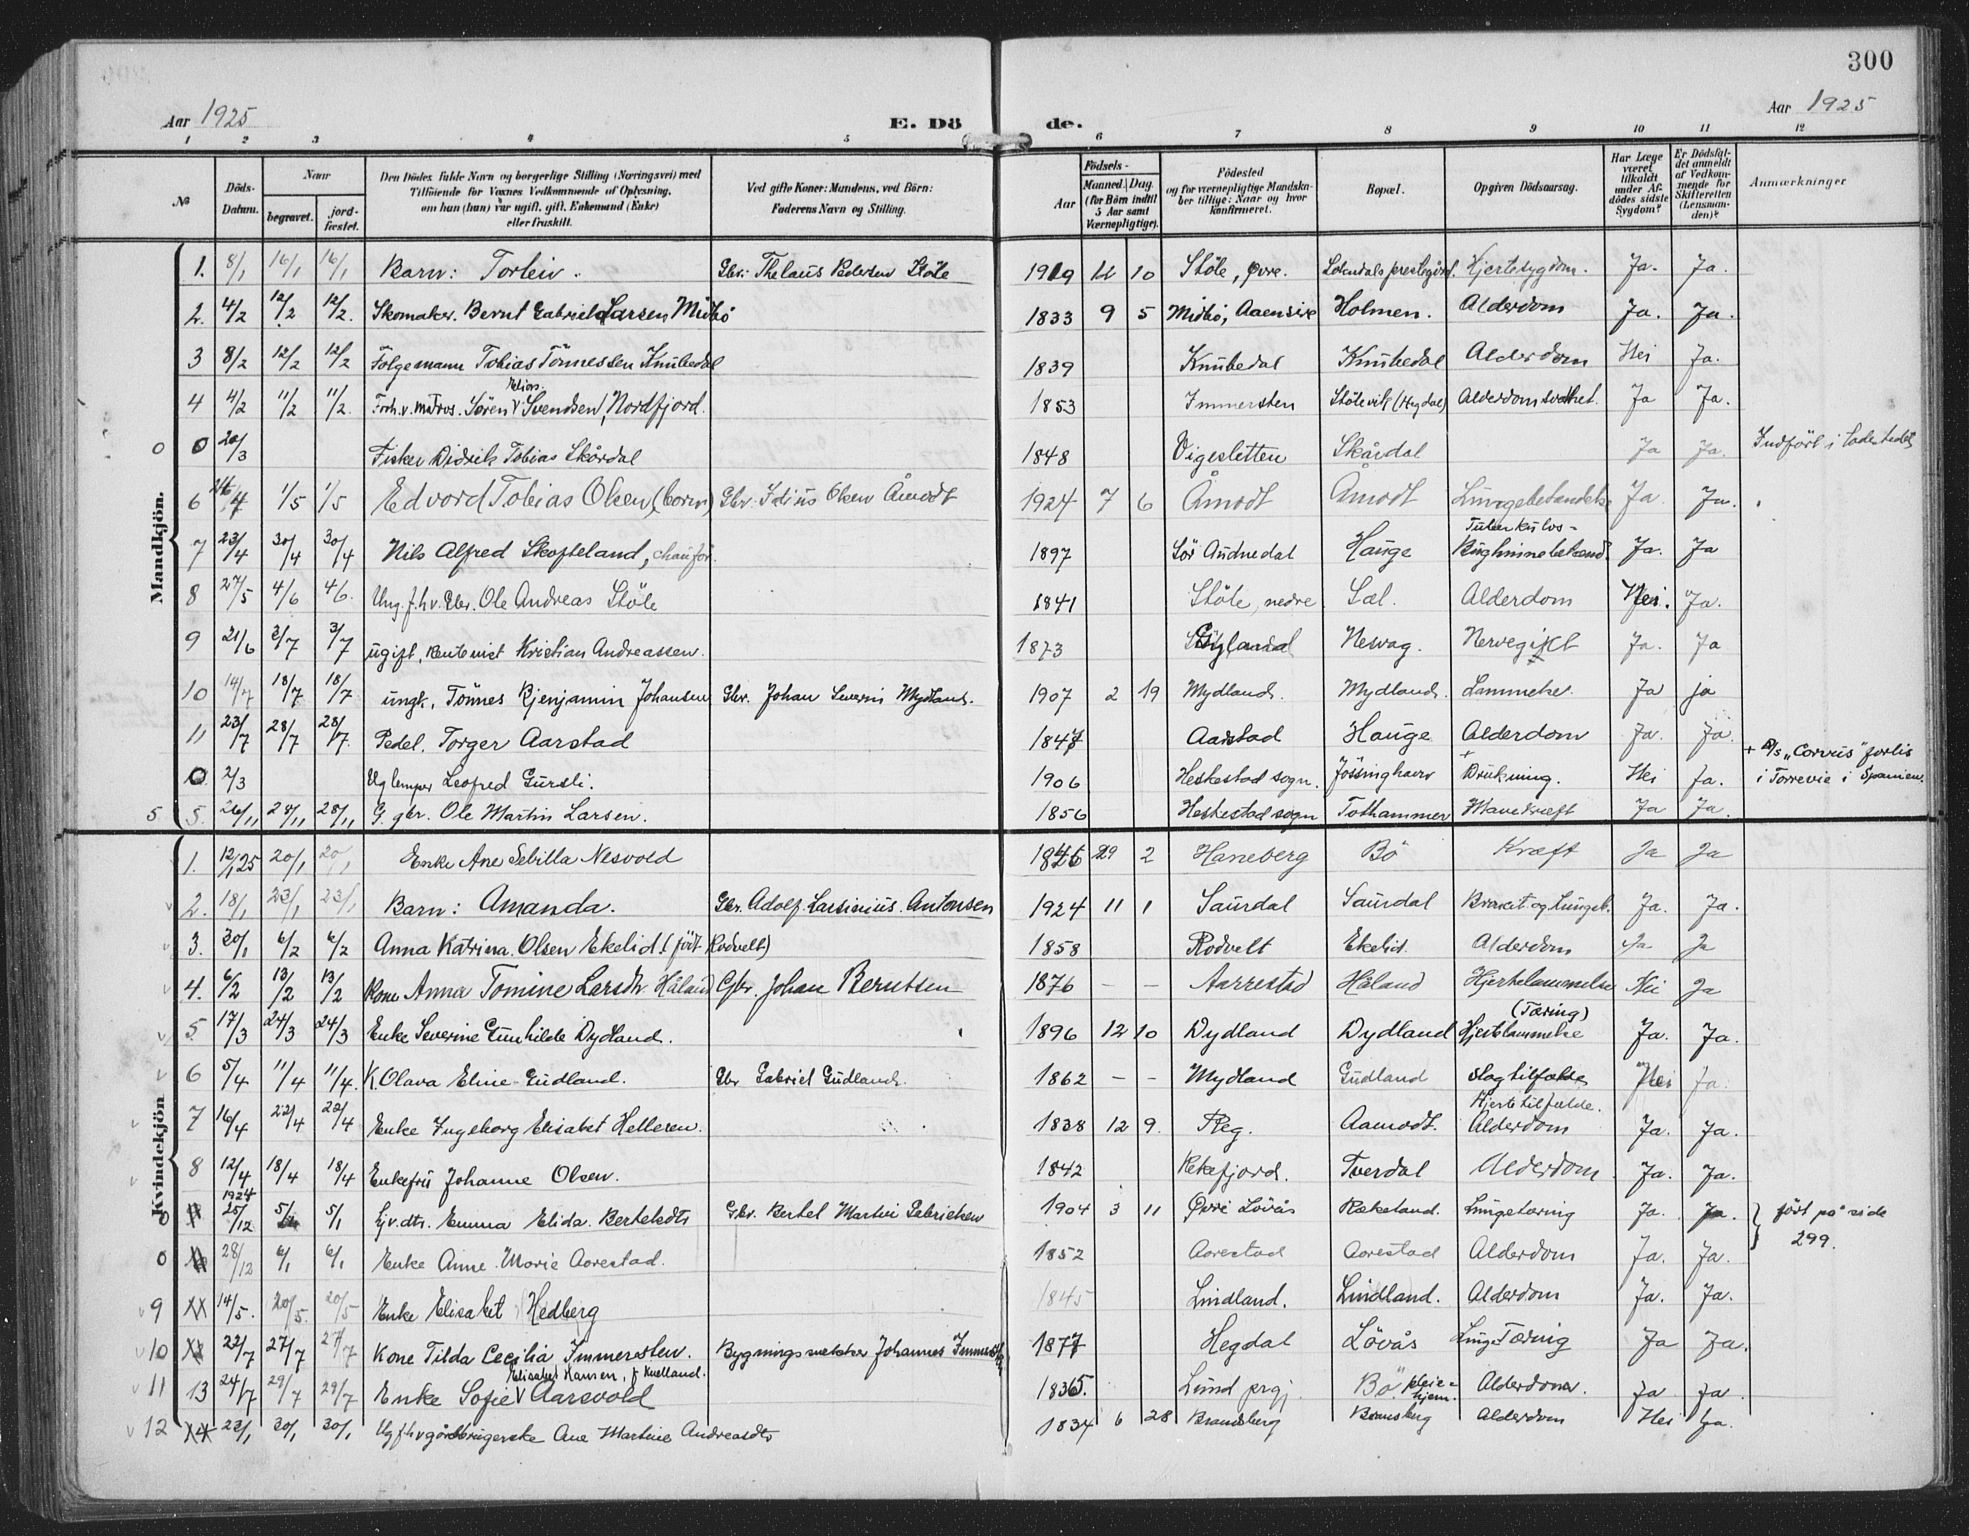 300
Aar 1925
E. Dö
de.
Aar 1925
1 2 3 4 5 6 7 8 9 10 11 12
№
Döds-Datum.
Naar
begravet.
jord-fæstet.
Den Dödes fulde Navn og borgerlige Stilling (Næringsvei) med
Tilföiende for Voxnes Vedkommende af Oplysning,
om han (hun) var ugift, gift, Enkemand (Enke)
eller fraskilt.
Ved gifte Koner: Mandens, ved Börn:
Faderens Navn og Stilling.
Födsels-
Aar
Maaned. Dag.
(for Börn indtil
5 Aar samt
Værnepligtige).
Födested
og for værnepligtige Mandska-
ber tillige: Naar og hvor
konfirmeret.
Bopæl.
Opgiven Dödsaarsag.
Har Læge
været
tilkaldt
under Af-
dödes sidste
Sygdom?
Er Dödsfal-
det anmeldt
af Vedkom-
mende for
Skifteretten
(Lensman-
den)?
Anmærkninger
Mandkjön.
1. 8/1 16/1 16/1 Barn: Torleiv. Gbr: Thelaus Pedersen Stöle 1919 11 10 Stöle, Øvre. Sokndals prestegård. Hjertesygdom. Ja. Ja.
2. 4/2 12/2 12/2. Skomaker. Bernt Gabriel Larsen Midbö 1833 9 5 Midbö, Aaensire Holmen. Alderdom Ja. Ja.
3 8/2 12/2 12/2 Folgemann Tobias Tönnessen Knubedal 1839 Knubedal Knubedal Alderdom Nei Ja.
4 4/2 11/2 11/2. Forh.v. matros. Sören Elias. Svendsen, Nordfjord. 1853 Immersten Stölevik (Hegdal) Alderdomsvakhet. Ja Ja.
0 0 20/3 Fisker Didrik Tobias Skårdal 1848 Vigesletten Skårdal Ja Ja. Indfört i
6 26/4 1/5 1/5 Edvard Tobias Olsen (barn) Gbr. Idius Olsen Åmodt 1924 7 6 Åmodt Åmodt Lungebetændelse Ja Ja.
7 23/4 30/4 30/4 Nils Alfred Skofteland, chaufför. 1897 Sör Audnedal Hauge Tuberkulos-Bughinnebetænd. Ja. Ja
8 27/5 4/6 4/6. Ung.f.h.v. Gbr. Ole Andreas Stöle 1841 Stöle, nedre Sæl. Alderdom Nei. Ja.
9 21/6 3/7 3/7 ugift, Rentenist Kristian Andreassen. 1873 Nesvag. Nervegikt Ja. Ja
10 14/7 18/7 18/7 ungk., Tönnes Bjenjamin Johansen Gbr. Johan Severin Mydland. 1907 2 19 Mydland. Mydland. Lammelse. Ja ja
11 23/7 28/7 28/7. Pedel. Torger Aarstad 1847 Aarstad Hauge Alderdom Ja. Ja.
0 2/3 Ug lemper Leofred Gursli. 1906 Heskestad sogn. Jössinghavn + Drukning. Nei Ja. + D/s „Corvus” forlis
i Torrevie i Spanien.
5 5. 26/11 28/11 28/11 G. gbr. Ole Martin Larsen. 1856 Heskestad sogn Tothammer Mavekræft Ja Ja.
Kvindekjön
1. 12/1 25 20/1 20/1 Enke Ane Sebilla Nesvold 1846 29 2 Haneberg Bö Kræft Ja Ja
2. 18/1 23/1 23/1 Barn: Amanda. Gbr. Adolf Lassinius. Antonsen 1924 11 1 Saurdal Saurdal Ja. Ja.
3. 30/1 6/2 6/2 Anna Katrina. Olsen Ekelid. (född. Rodvelt) 1858 Rodvelt Ekelid. Alderdom Ja Ja
4. 6/2 13/2 13/2 Kone Anna Tomine Larsdtr. Håland Gbr. Johan Berntsen 1876 – – Aarrestad Håland Hjertelammelse Nei Ja
5. 17/3 24/3 24/3 Enke Severine Gunhilde Dydland. 1896 12 10 Dydland Dydland (Tæring) Hjertelammelse Ja. Ja.
6 5/4 11/4 11/4. K. Olava Eline Gudland. Gbr Gabriel Gudland. 1862 – – Mydland Gudland Slagtilfælde Nei Ja.
7 16/4 22/4 22/4 Enke Ingeborg Elisabet Helleren. 1838 12 9. Reg. Aamodt. Hjertetilfælde. Alderdom Ja. Ja.
8 12/4 18/4 18/4 Enkefru Johanne Olsen. 1842 Rekefjord. Tverdal Alderdom Ja. Ja.
0 11 1924 25/12 5/1 5/1 Gbr. Bertel Martin Gabrielsen Emma Elida. Berteldtr 1904 3 11 Øvre Lövås Rekeland. Lungetæring Ja. Ja. } fört på side
0 28/12 6/1 6/1 Enke Anne Marie Aarestad. 1852 Aarestad Aarestad Alderdom Ja. Ja. 299.
9 14/5. 20/5. 20/5 Enke Elisabet Hedberg 1845 Lindland. Lindland. Alderdom Ja. Ja.
10 22/7 27/7 27/7 Kone Tilda Cecilia Immersten. Bygningsmester Johannes Immersten 1877 Hegdal Lövås Lunge Tæring Ja Ja.
11 13 24/7 29/7 29/7 Enke Sofie Elisabet Hansen, f. Kvelland. Aarsvold 1835. Lund prgj. Bö pleie-hjem. Alderdom. Ja Ja.
12 14 23/1 30/1 30/1 Ug fhv gårdbrugerske Ane Martine Andreasdtr 1834 6 28 Bramberg Bramsberg Alderdom Nei Ja.